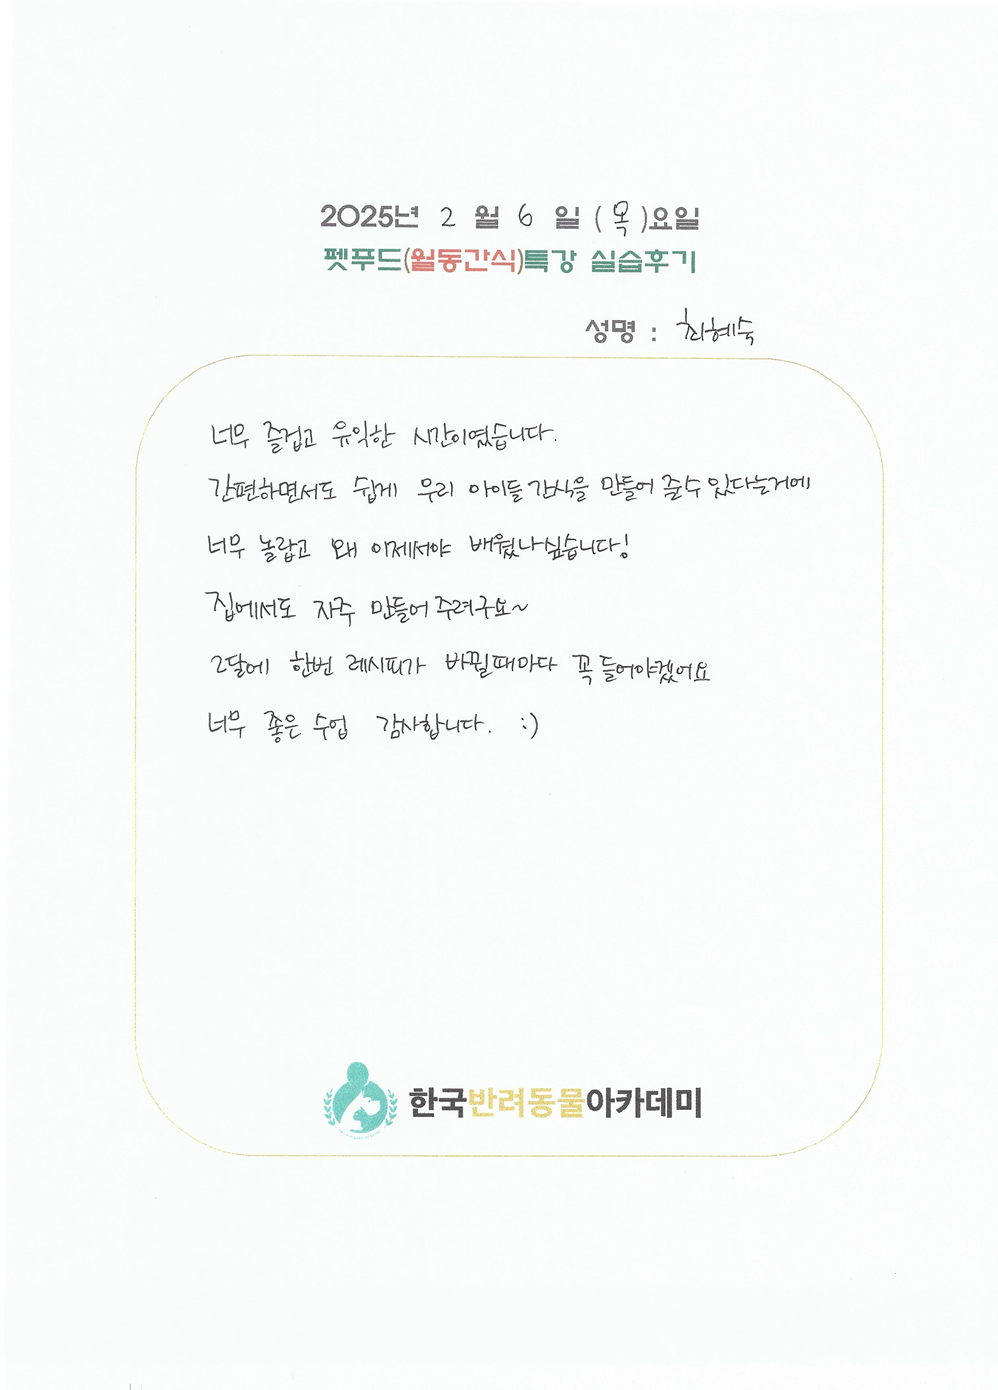 2025년 2 월 6 일 (목)요일
펫푸드(월동간식)특강 실습후기
성명 : 최혜숙
너무 즐겁고 유익한 시간이였습니다.
간편하면서도 쉽게 우리 아이들 간식을 만들어 줄수 있다는거에
너무 놀랍고 왜 이제서야 배웠나싶습니다!
집에서도 자주 만들어 주려구요~
2달에 한번 레시피가 바뀔때마다 꼭 들어야겠어요
너무 좋은 수업 감사합니다. :)
한국반려동물아카데미